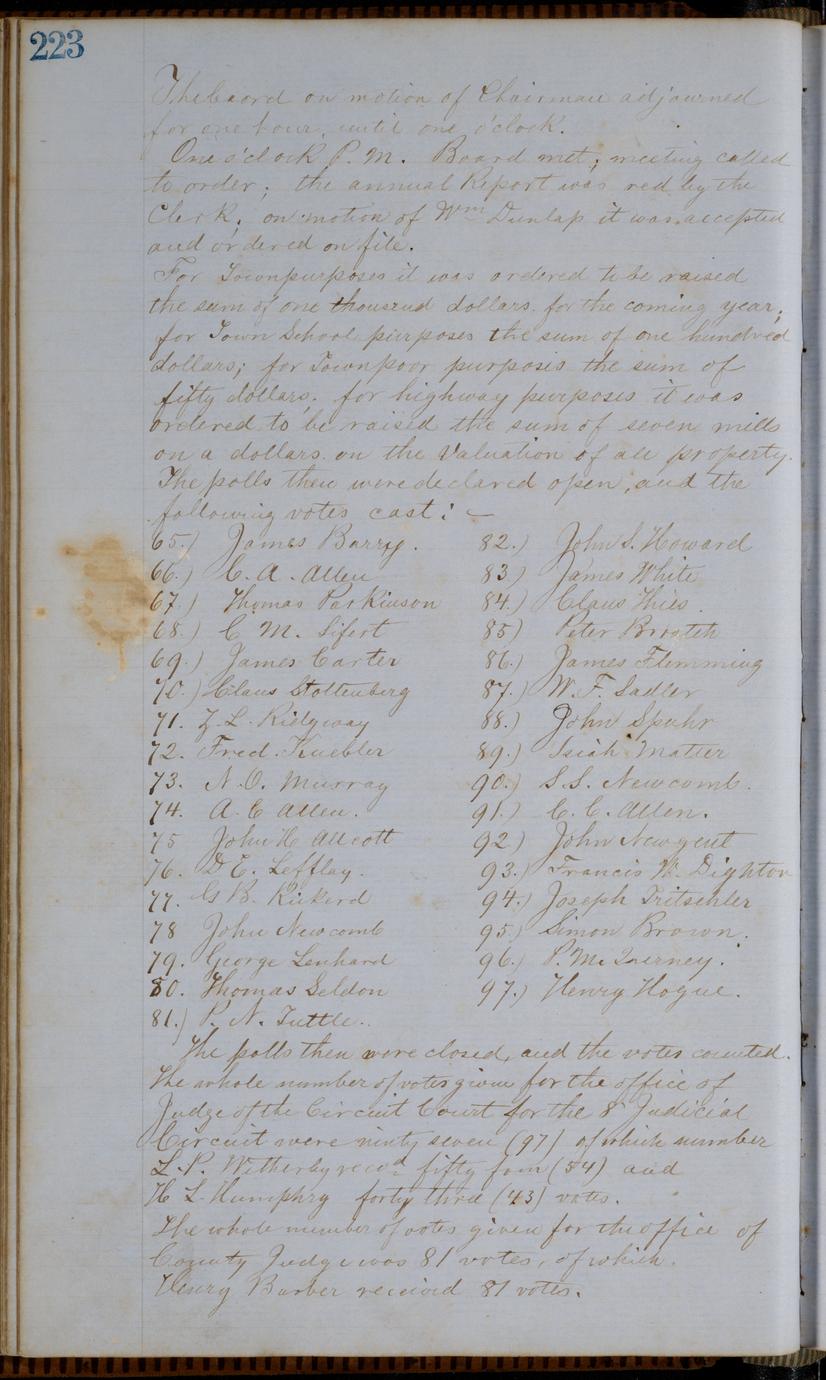 223
The board on motion of Chairman adjourned
for one hour, until one o'clock.
One o'clock P. M. Board met; meeting called
to order; the annual Report was red by the
Clerk; on motion of Wm Dunlap it was accepted
and ordered on file.
For Town purposes it was ordered to be raised
the sum of one thousand dollars for the coming year;
for Town School purposes the sum of one hundred
dollars; for Town poor purposes the sum of
fifty dollars; for highway purposes it was
ordered to be raised the sum of seven mills
on a dollars on the Valuation of all property.
The polls then were declared open, and the
following votes cast: —
65.) James Barry.
66.) C. A. Allen
67.) Thomas Parkinson
68.) C. M. Sifert
69.) James Carter
70.) Claus Stoltenberg
71. Z. L. Ridgway
72. Fred. Kuebler
73. N. O. Murray
74. A. C Allen.
75 John H Allcott
76. D E. Lefflay.
77. G B. Rickerd
78 John Newcomb
79. George Lenhard
80. Thomas Seldon
81.) P. N. Tuttle.
82.) John S. Howard
83.) James White
84.) Claus Thies.
85) Peter
86.) James Flemming
87.) W. F. Sadler
88.) John Spuhr
89.) Isiah Matter
90.) S. S. Newcomb.
91.) C. C. Allen.
92) John Newgent
93.) Francis W. Dighton
94.) Joseph Tritschler
95.) Simon Brown.
96.) P. Mc Inerney.
97.) Henry Hogue.
The polls then were closed, and the votes counted.
The whole number of votes given for the office of
Judge of the Circuit Court for the 8 Judicial
Circuit were ninty seven (97) of which number
L. P. Witherby recvd fifty four (54) and
H L. Humphry forty third (43) votes.
The whole number of votes given for the office of
County Judge was 81 votes, of which.
Henry Barber received 81 votes.